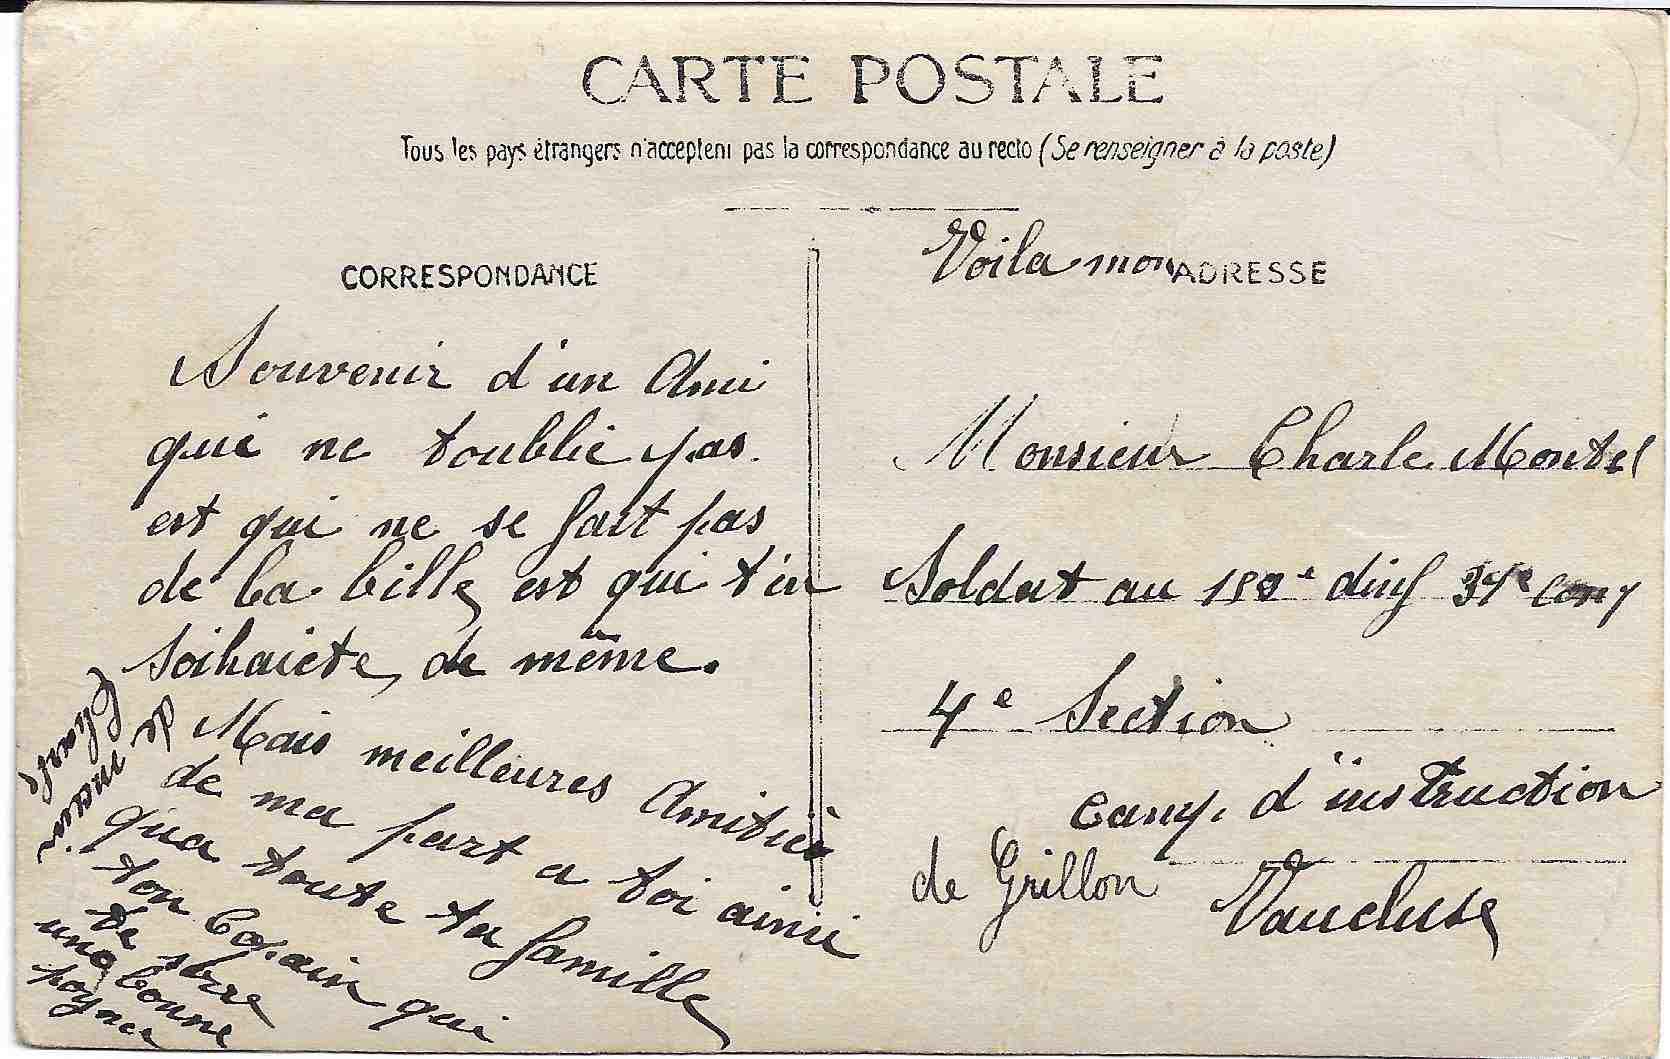 CARTE POSTALE
Tous les pays étrangers n'acceptent pas la correspondance au recto (Se renseigner à la poste)
CORRESPONDANCE
Souvenir d'un Ami
qui ne t'oublie pas.
est qui ne se fait pas
de la bille est qui t'en
soihaiete de même.
Mais meilleures Amitiés
de ma part a toi ainsi
qua toute ta famille
ton Copain qui
te sere
une bonne
poigner
de main.
Charle
Voila mon ADRESSE
Monsieur Charle Montel
Soldat au dinf 34e Comp
4e Section
camp. d'instruction
de Grillon Vaucluse